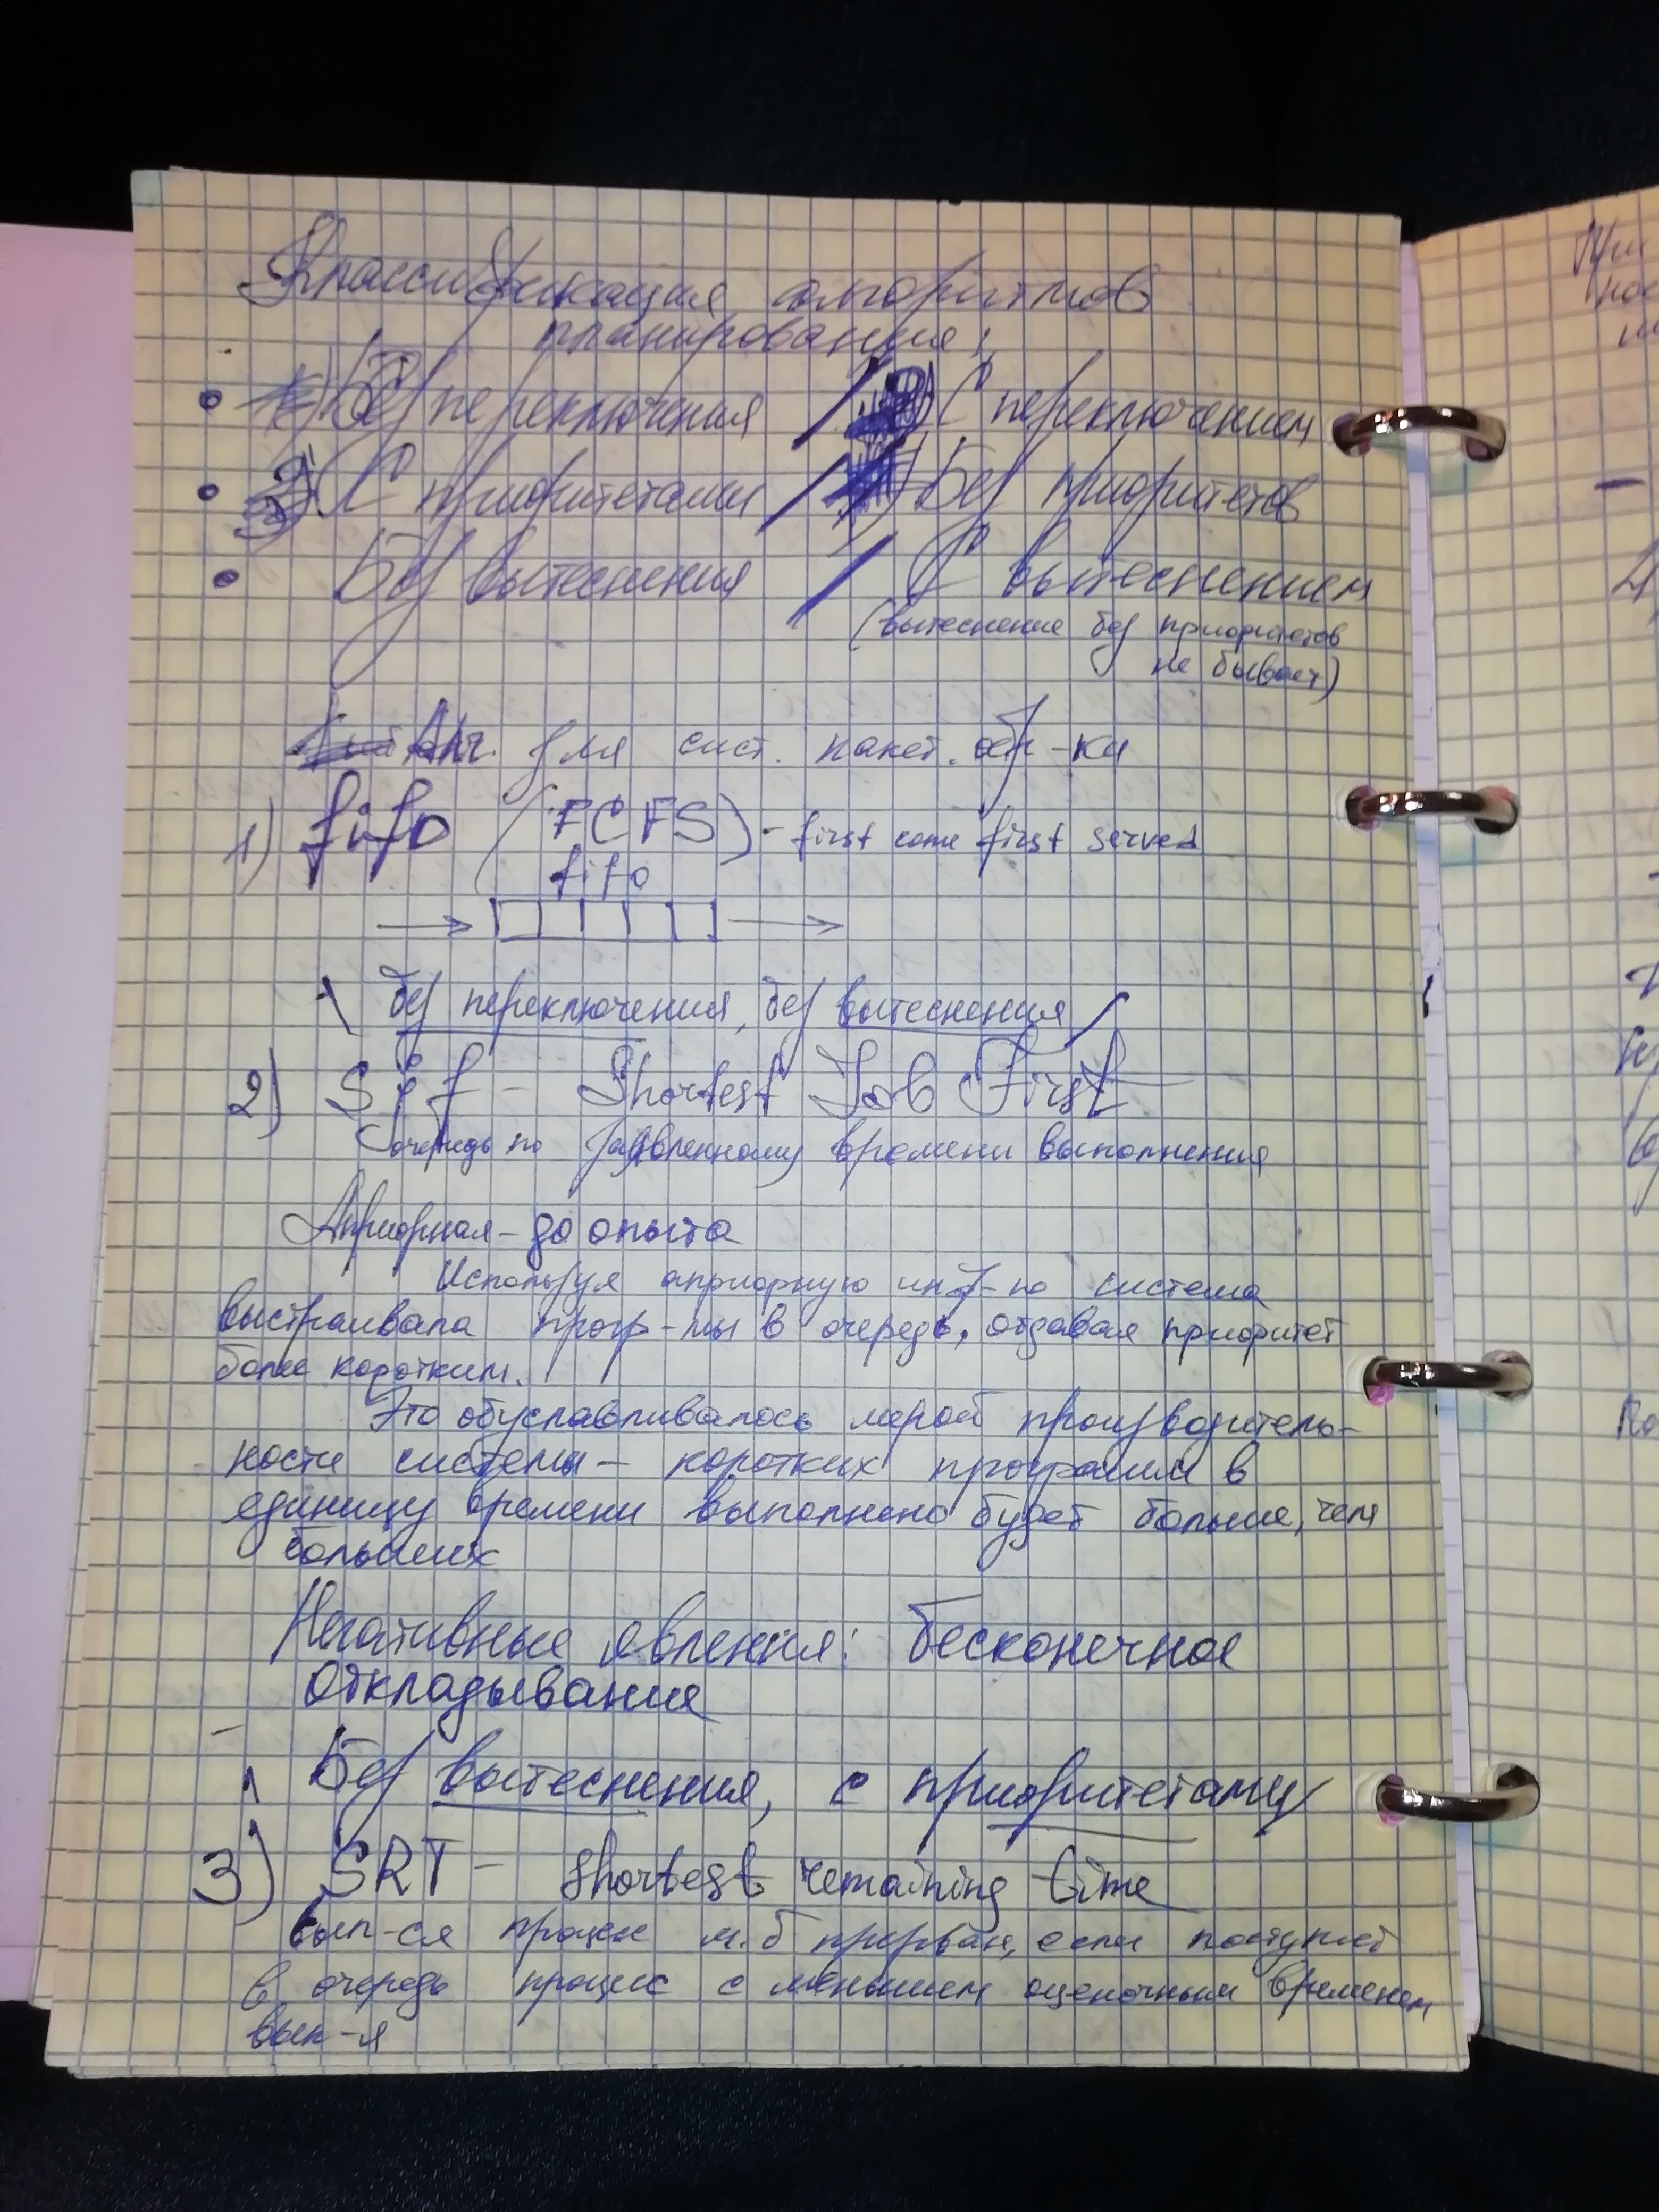 Классификация алгоритмов
планирования:
• Без переключения / С переключением
• С приоритетами / Без приоритетов
• Без вытеснения / С вытеснением
(вытеснение без приоритетов
не бывает)
Алг. для сист. пакет. обр-ки
1) fifo (FCFS) - first come first served
fifo
без переключения, без вытеснения
2) Sjf - Shortest Job First
очередь по заявленному времени выполнения
Априорная - до опыта
Используя априорную инф-ю система
выстраивала прогр-мы в очередь, отдавая приоритет
более коротким.
Это обуславливалось мерой производитель-
ности системы - коротких программ в
единицу времени выполнено будет больше, чем
больших
Негативные явления: бесконечное
откладывание
Без вытеснения, с приоритетами
3) SRT - shortest remaining time
вып-ся процесс м.б прерван, если поступает
в очередь процесс с меньшим оценочным временем
вып-я